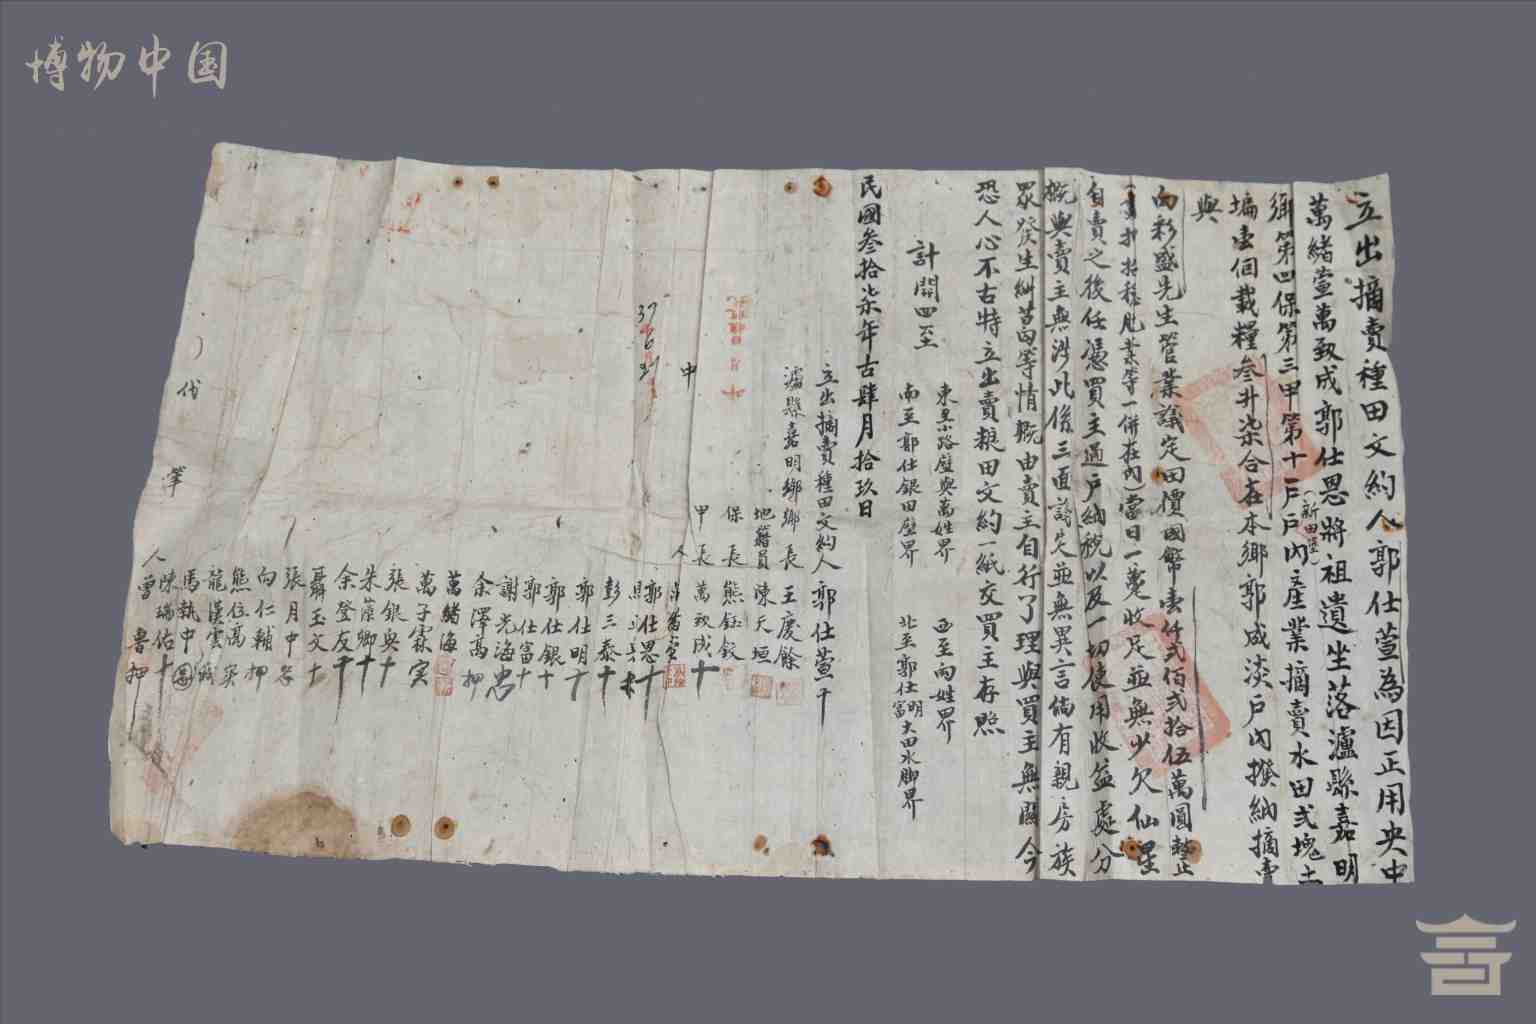 博物中国
立出摘賣種田文約人郭仕萱為因正用央中
萬緒萱萬致成郭仕恩將祖遺坐落瀘縣嘉明
鄉第四保第三甲第十一戶戶內產業摘賣水田弍塊土
(新田壟)
壹個載糧叁升柒合在本鄉郭成淡戶內撥納摘賣
與
向彩盛先生管業議定田價國幣壹仟弍佰弍拾伍萬圓整
等一併在內)當日一㐅收足並無少欠仙星
自賣之後任憑買主過戶納稅以及一切使用收益處分
概與賣主無涉此係三面議定並無異言倘有親房族
眾發生糾葛等情概由賣主自行了理與買主無關今
恐人心不古特立出賣糧田文約一紙交買主存照
計開四至
東至小路壁與萬姓界
南至郭仕銀田壁界
西至向姓界
北至郭仕明富大田水腳界
民國叁拾柒年古肆月拾玖日
立出摘賣種田文約人郭仕萱十
瀘縣嘉明鄉鄉長王慶餘
地籍員陳天垣
保長熊鈺釵
甲長萬致成十
中
人
郭仕恩十
彭三泰十
郭仕明十
郭仕銀十
郭仕富十
謝光海忠
余澤萬押
萬緒海
萬子霖
張銀與十
朱蔭卿十
余登友十
聶玉文十
張月中
向仁輔押
熊位高
龍漢雲
馬執中
陳瑞佑十
代筆人曾魯押